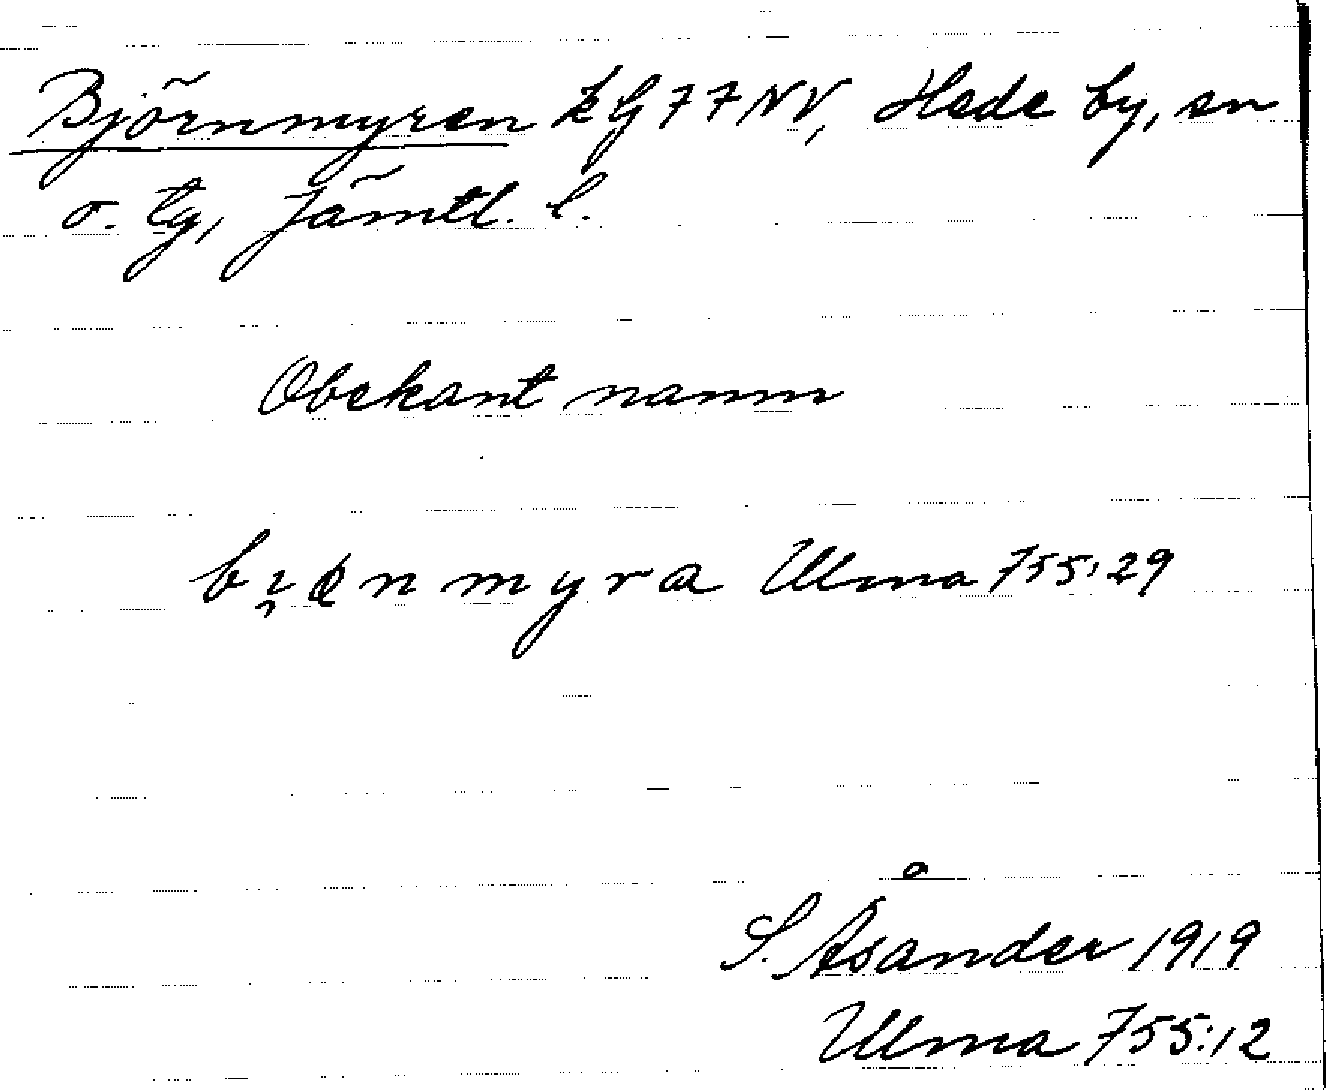 Björnmyren kG77NV, Hede by, sn
o. tg, Jämtl. l.
Obekant namn
myra Ulma 755:29
S. Åsander 1919
Ulma 755:12